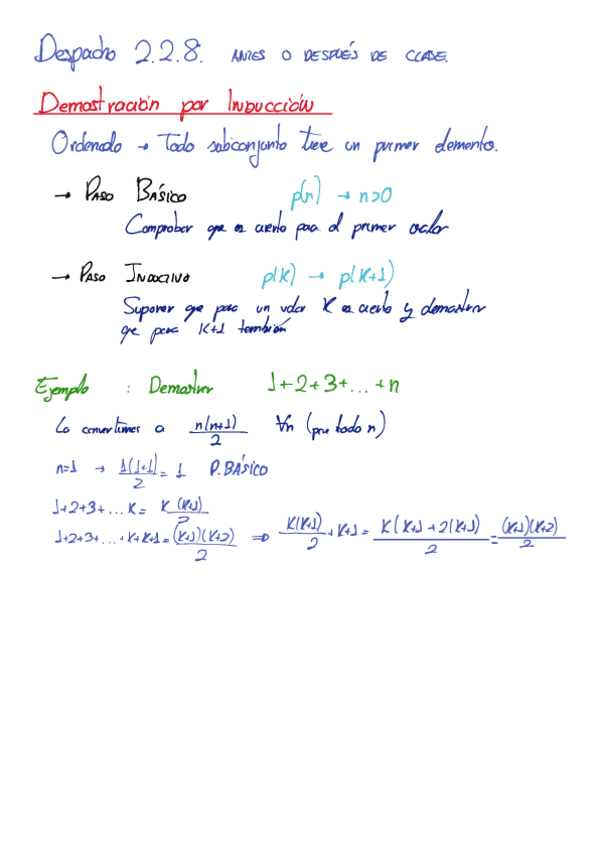 Despacho 2.2.8. ANTES O DESPUÉS DE CLASE.
Demostración por Inducción
Ordenado → Todo subconjunto tiene un primer elemento.
→ Paso Básico p(n) → n>0
Comprobar que es cierto para el primer valor
→ Paso Inductivo p(K) → p(K+1)
Suponer que para un valor K es cierto y demostrar
que para K+1 también
Ejemplo : Demostrar 1+2+3+...+n
Lo convertimos a n(n+1)/2 ∀n (para todo n)
n=1 → 1(1+1)/2 = 1 P. BÁSICO
1+2+3+...K = K(K+1)/2
1+2+3+...+K+K+1 = (K+1)(K+2)/2 ⇒ K(K+1)/2 + K+1 = K(K+1+2(K+1)/2 = (K+1)(K+2)/2